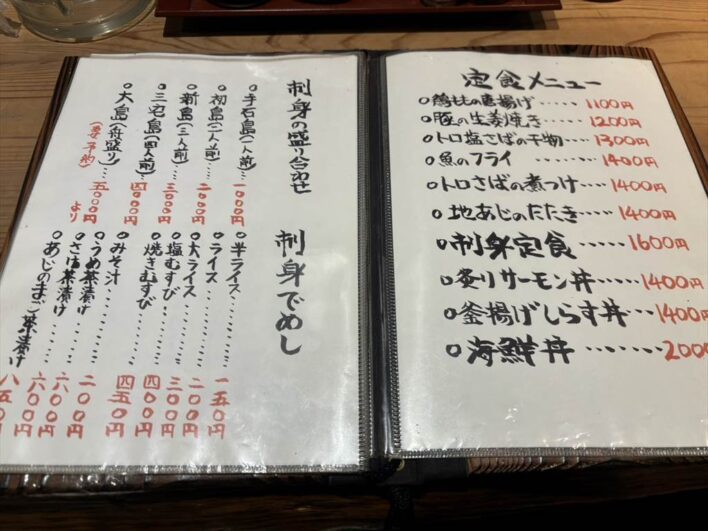 刺身の盛り合わせ
○手石島(一人前)…一〇〇〇円
○初島(二人前)…二〇〇〇円
○新島(三人前)…三〇〇〇円
○三宅島(四人前)…四〇〇〇円
○大島(舟盛り)…五〇〇〇円より
(要予約)
刺身でめし
○半ライス………一五〇円
○ライス………二〇〇円
○大ライス………三〇〇円
○塩むすび………四〇〇円
○焼きむすび………四五〇円
○みそ汁………二〇〇円
○うめ茶漬け………六〇〇円
○さけ茶漬け………六〇〇円
○あじのまご茶漬け 八五〇円
定食メニュー
○鶏ももの唐揚げ……1100円
○豚の生姜焼き……1200円
○トロ塩さばの干物……1300円
○魚のフライ ……1400円
○トロさばの煮つけ……1400円
○地あじのたたき……1400円
○刺身定食……1600円
○炙りサーモン丼……1400円
○釜揚げしらす丼……1400円
○海鮮丼………2000